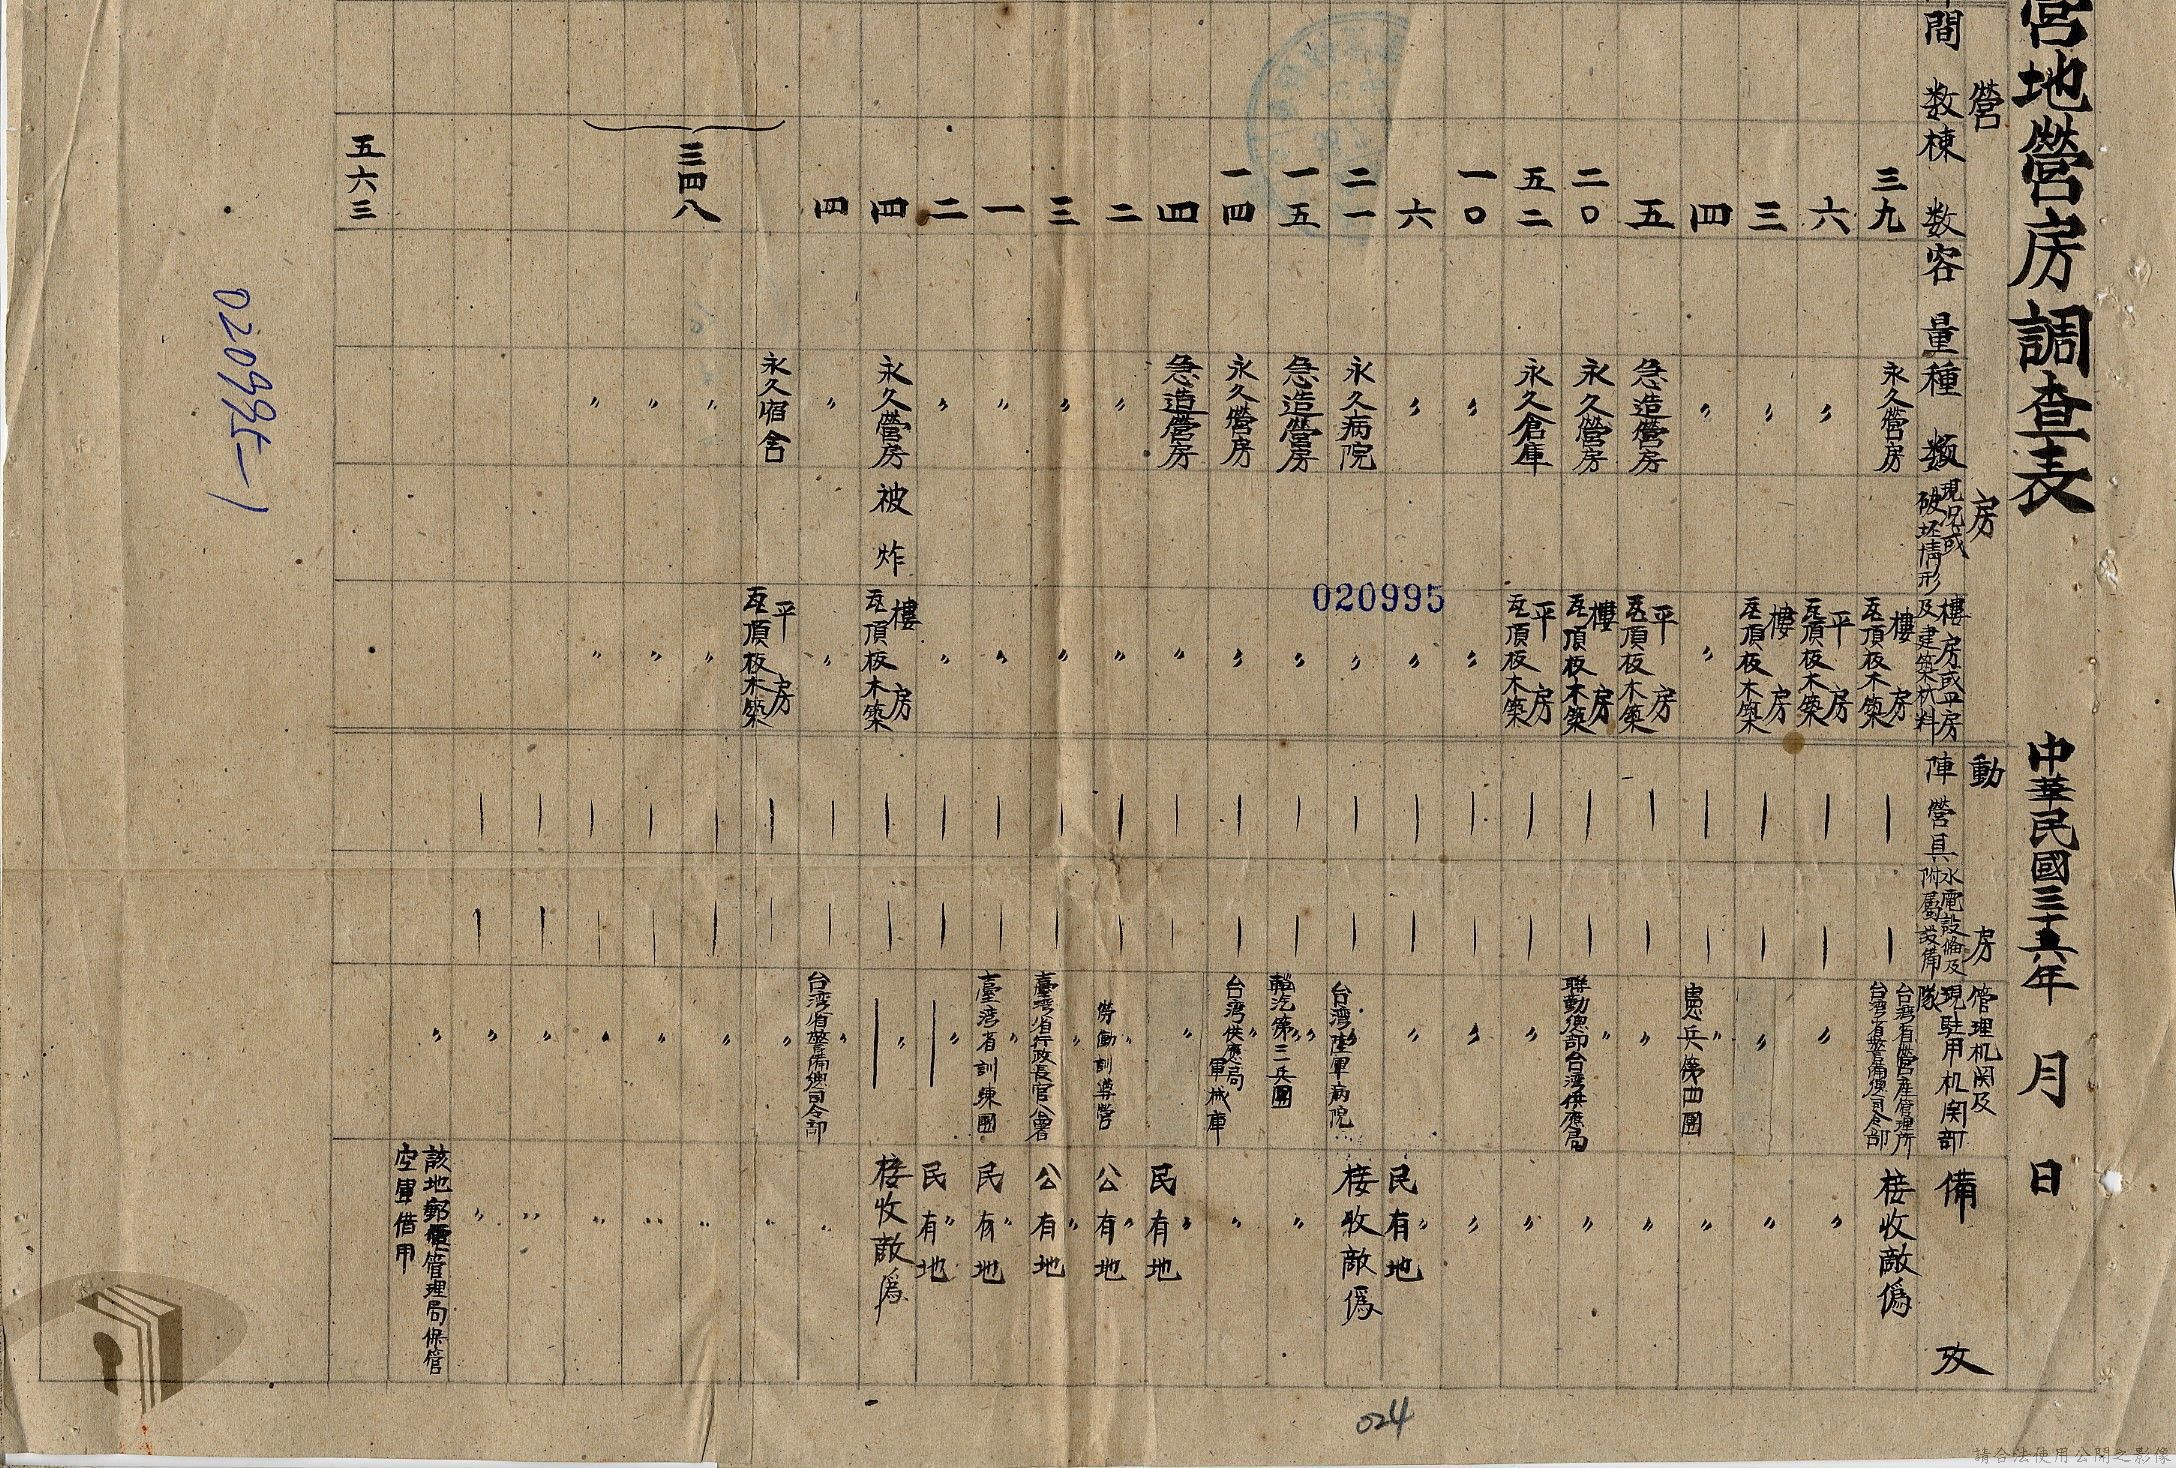 營地營房調查表 中華民國三十六年 月 日
營 房 動 房 管理机関及
間 数 棟 数 容量 種類 現況或破坯情形 樓房或平房及建築材料 陣營具 水電設俻及附屬設俻 現駐用机関部隊 備攷
三九 永久營房 樓房 瓦頂板木築 | | 台湾省營産管理所 台湾省警備總司令部 接收敵偽
六 〃 平房 瓦頂板木築 | | 〃 〃
三 〃 樓房 瓦頂板木築 | | 〃 〃
四 〃 〃 | | 〃 憲兵第四團 〃
五 急造營房 平房 瓦頂板木築 | | 〃 〃
二〇 永久營房 樓房 瓦頂板木築 | | 〃 聯勤總部台湾供應局 〃
五二 永久倉庫 平房 瓦頂板木築 | | 〃 〃
一〇 〃 〃 | | 〃 〃
六 〃 〃 | | 〃 〃 民有地
二一 永久病院 〃 | | 〃 台湾陸軍病院 接收敵偽
一五 急造營房 〃 | | 〃 輜汽第二兵團 〃
一四 永久營房 〃 | | 〃 台湾供應局軍械庫 〃
四 急造營房 〃 | | 〃 〃 民有地
二 〃 〃 | | 〃 勞動訓導營 〃 公有地
三 〃 〃 | | 臺灣省行政長官公署 〃 公有地
一 〃 〃 | | 〃 臺湾省訓練團 〃 民有地
二 〃 〃 | | 〃 | 〃 民有地
四 永久營房 被炸 樓房 瓦頂板木築 | | 〃 | 接收敵偽
四 〃 〃 | | 〃 台湾省警備總司令部 〃
三四八 永久宿舍 平房 瓦頂板木築 | | 〃 〃
〃 〃 | | 〃 〃
〃 〃 | | 〃 〃
〃 〃 | | 〃 〃
| | 〃 〃
| | 〃 〃
〃 該地郵電管理局保管 空軍借用
五六三
020995
020995-1
024
請合法使用公開之影像